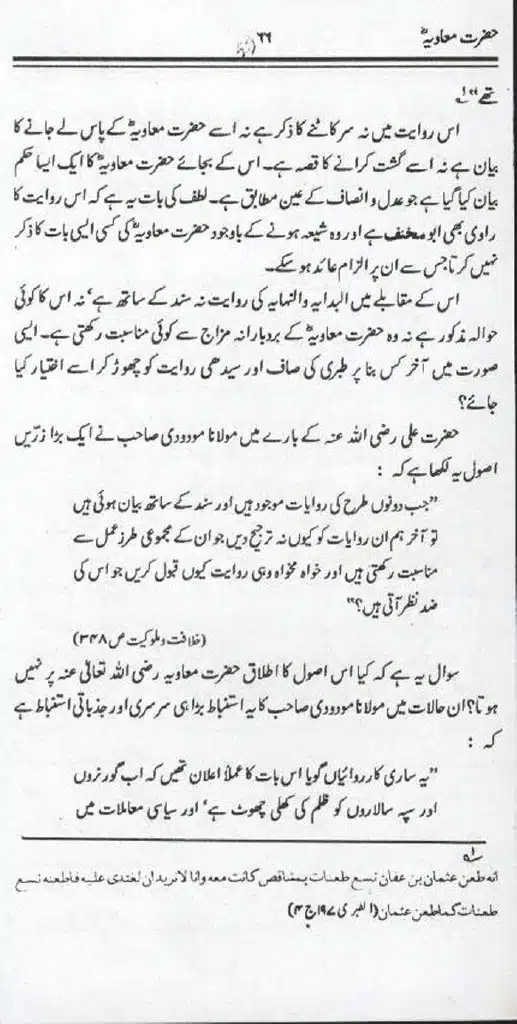 حضرت معاویہؓ
۶۶
تھے"؎۱
اس روایت میں نہ سر کاٹنے کا ذکر ہے نہ اسے حضرت معاویہؓ کے پاس لے جانے کا
بیان ہے نہ اسے گشت کرانے کا قصہ ہے۔ اس کے بجائے حضرت معاویہؓ کا ایک ایسا حکم
بیان کیا گیا ہے جو عدل و انصاف کے عین مطابق ہے۔ لطف کی بات یہ ہے کہ اس روایت کا
راوی بھی ابو مخنف ہے اور وہ شیعہ ہونے کے باوجود حضرت معاویہؓ کی کسی ایسی بات کا ذکر
نہیں کرتا جس سے ان پر الزام عائد ہو سکے۔
اس کے مقابلے میں البدایہ والنہایہ کی روایت نہ سند کے ساتھ ہے' نہ اس کا کوئی
حوالہ مذکور ہے نہ وہ حضرت معاویہؓ کے بردبارانہ مزاج سے کوئی مناسبت رکھتی ہے۔ ایسی
صورت میں آخر کس بنا پر طبری کی صاف اور سیدھی روایت کو چھوڑ کر اسے اختیار کیا
جائے؟
حضرت علی رضی اللہ عنہ کے بارے میں مولانا مودودی صاحب نے ایک بڑا زرّیں
اصول یہ لکھا ہے کہ :
"جب دونوں طرح کی روایات موجود ہیں اور سند کے ساتھ بیان ہوئی ہیں
تو آخر ہم ان روایات کو کیوں نہ ترجیح دیں جو ان کے مجموعی طرز عمل سے
مناسبت رکھتی ہیں اور خواہ مخواہ وہی روایت کیوں قبول کریں جو اس کی
ضد نظر آتی ہیں؟"
(خلافت و ملوکیت ص ۳۴۸)
سوال یہ ہے کہ کیا اس اصول کا اطلاق حضرت معاویہ رضی اللہ تعالیٰ عنہ پر نہیں
ہوتا؟ ان حالات میں مولانا مودودی صاحب کا یہ استنباط بڑا ہی سرسری اور جذباتی استنباط ہے
کہ :
"یہ ساری کارروائیاں گویا اس بات کا عملاً اعلان تھیں کہ اب گورنروں
اور سپہ سالاروں کو ظلم کی کھلی چھوٹ ہے' اور سیاسی معاملات میں
؎۱
انه طعن عثمان بن عفان تسع طعنات بمشاقص كانت معه وانا لا نريد ان نعتدى عليه فاطعنه تسع
طعنات كما طعن عثمان (الطبری ۱۹۷ ج ۴)